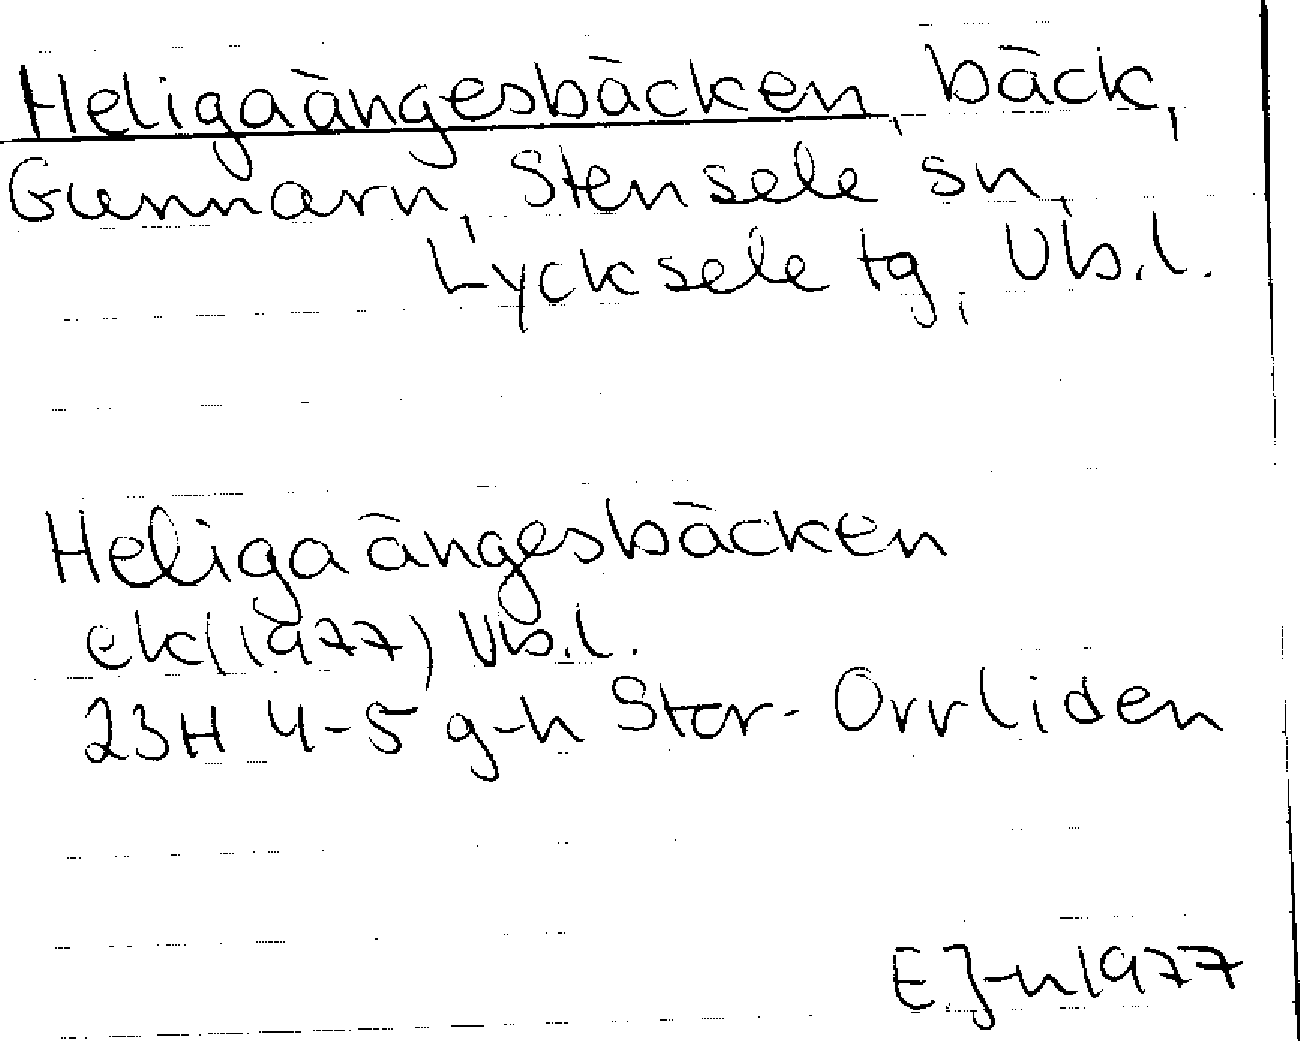 Heligaängesbäcken, bäck,
Gunnarn, Stensele sn,
Lycksele tg, Vb.l.
Heligaängesbäcken
ek(1977) Vb.l.
23H 4-5 g-h Stor-Orrliden
EJ-n 1977